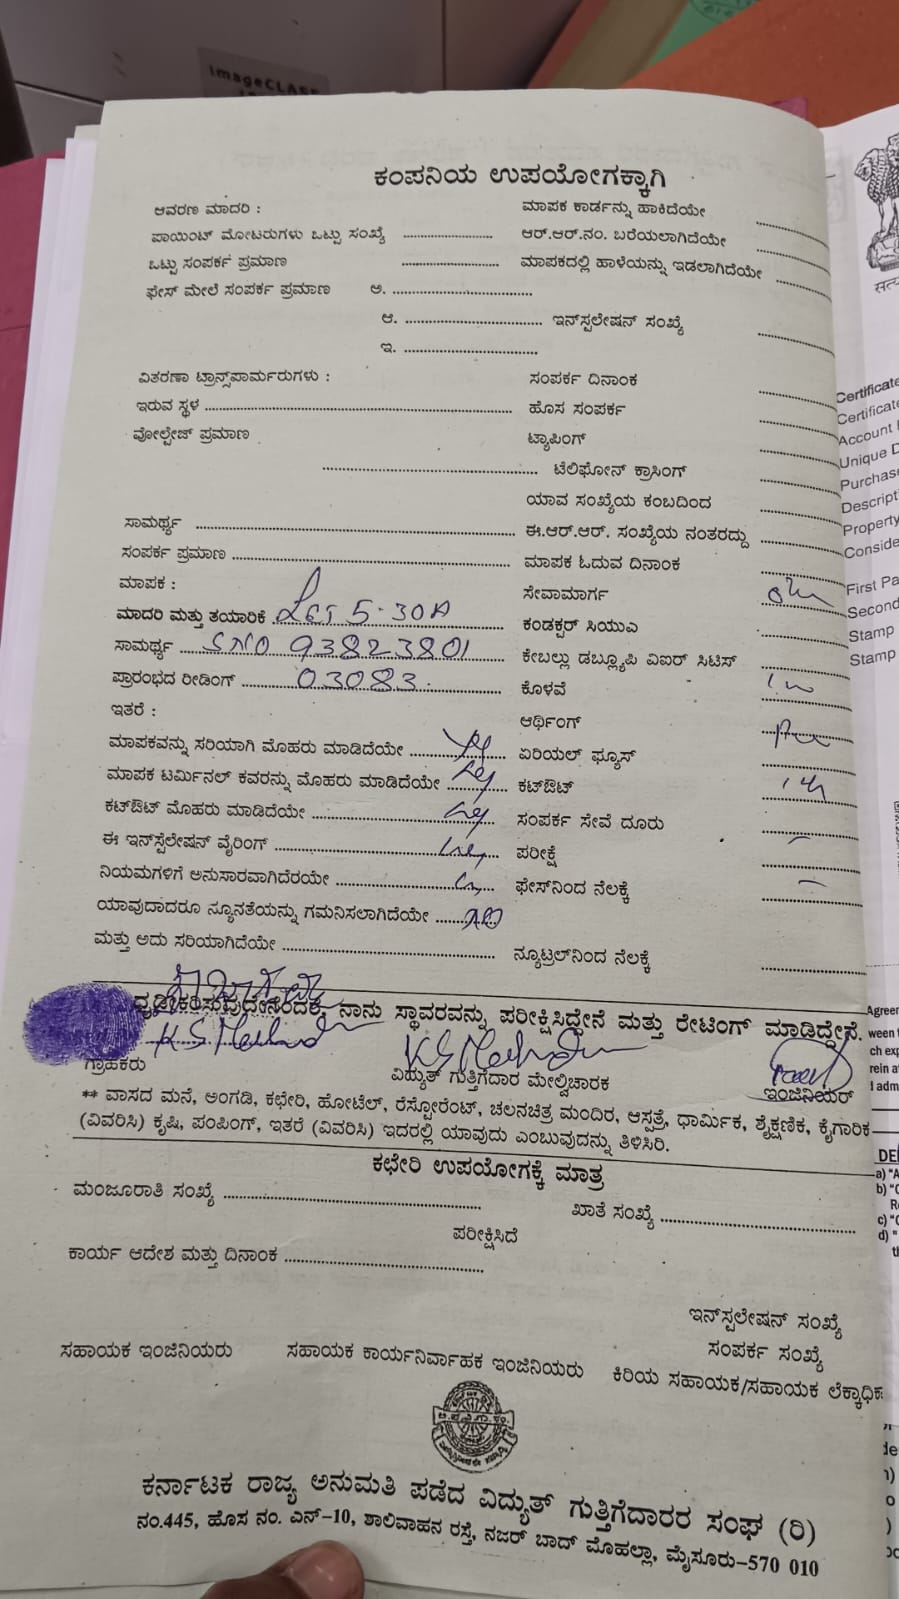 imageCLASS
ಕಂಪನಿಯ ಉಪಯೋಗಕ್ಕಾಗಿ
ಆವರಣ ಮಾದರಿ : ಮಾಪಕ ಕಾರ್ಡನ್ನು ಹಾಕಿದೆಯೇ
ಪಾಯಿಂಟ್ ಮೋಟರುಗಳು ಒಟ್ಟು ಸಂಖ್ಯೆ ಆರ್.ಆರ್.ನಂ. ಬರೆಯಲಾಗಿದೆಯೇ
ಒಟ್ಟು ಸಂಪರ್ಕ ಪ್ರಮಾಣ ಮಾಪಕದಲ್ಲಿ ಹಾಳೆಯನ್ನು ಇಡಲಾಗಿದೆಯೇ
ಫೇಸ್ ಮೇಲೆ ಸಂಪರ್ಕ ಪ್ರಮಾಣ ಅ.
ಆ. ಇನ್‌ಸ್ಟಲೇಷನ್ ಸಂಖ್ಯೆ
ಇ.
ವಿತರಣಾ ಟ್ರಾನ್ಸ್‌ಪಾರ್ಮರುಗಳು : ಸಂಪರ್ಕ ದಿನಾಂಕ
ಇರುವ ಸ್ಥಳ ಹೊಸ ಸಂಪರ್ಕ
ವೋಲ್ಟೇಜ್ ಪ್ರಮಾಣ ಟ್ಯಾಪಿಂಗ್
ಟೆಲಿಫೋನ್ ಕ್ರಾಸಿಂಗ್
ಯಾವ ಸಂಖ್ಯೆಯ ಕಂಬದಿಂದ
ಸಾಮರ್ಥ್ಯ ಈ.ಆರ್.ಆರ್. ಸಂಖ್ಯೆಯ ನಂತರದ್ದು
ಸಂಪರ್ಕ ಪ್ರಮಾಣ ಮಾಪಕ ಓದುವ ದಿನಾಂಕ
ಮಾಪಕ : ಸೇವಾಮಾರ್ಗ
ಮಾದರಿ ಮತ್ತು ತಯಾರಿಕೆ L&T 5-30A ಕಂಡಕ್ಟರ್ ಸಿಯುಎ
ಸಾಮರ್ಥ್ಯ SNO 93823801 ಕೇಬಲ್ಲು ಡಬ್ಲ್ಯೂಪಿ ವಿಐರ್ ಸಿಟಿಸ್
ಪ್ರಾರಂಭದ ರೀಡಿಂಗ್ 03083 ಕೊಳವೆ
ಇತರೆ : ಆರ್ಥಿಂಗ್
ಮಾಪಕವನ್ನು ಸರಿಯಾಗಿ ಮೊಹರು ಮಾಡಿದೆಯೇ ಏರಿಯಲ್ ಫ್ಯೂಸ್
ಮಾಪಕ ಟರ್ಮಿನಲ್ ಕವರನ್ನು ಮೊಹರು ಮಾಡಿದೆಯೇ ಕಟ್‌ಔಟ್
ಕಟ್‌ಔಟ್ ಮೊಹರು ಮಾಡಿದೆಯೇ ಸಂಪರ್ಕ ಸೇವೆ ದೂರು
ಈ ಇನ್‌ಸ್ಟೆಲೇಷನ್ ವೈರಿಂಗ್ ಪರೀಕ್ಷೆ
ನಿಯಮಗಳಿಗೆ ಅನುಸಾರವಾಗಿದೆರಯೇ ಫೇಸ್‌ನಿಂದ ನೆಲಕ್ಕೆ
ಯಾವುದಾದರೂ ನ್ಯೂನತೆಯನ್ನು ಗಮನಿಸಲಾಗಿದೆಯೇ NO
ಮತ್ತು ಅದು ಸರಿಯಾಗಿದೆಯೇ ನ್ಯೂಟ್ರಲ್‌ನಿಂದ ನೆಲಕ್ಕೆ
ದೃಢೀಕರಿಸುವುದೇನೆಂದರೆ, ನಾನು ಸ್ಥಾವರವನ್ನು ಪರೀಕ್ಷಿಸಿದ್ದೇನೆ ಮತ್ತು ರೇಟಿಂಗ್ ಮಾಡಿದ್ದೇನೆ.
ಗ್ರಾಹಕರು ವಿದ್ಯುತ್ ಗುತ್ತಿಗೆದಾರ ಮೇಲ್ವಿಚಾರಕ ಇಂಜಿನಿಯರ್
** ವಾಸದ ಮನೆ, ಅಂಗಡಿ, ಕಛೇರಿ, ಹೋಟೆಲ್, ರೆಸ್ಟೋರೆಂಟ್, ಚಲನಚಿತ್ರ ಮಂದಿರ, ಆಸ್ಪತ್ರೆ, ಧಾರ್ಮಿಕ, ಶೈಕ್ಷಣಿಕ, ಕೈಗಾರಿಕ
(ವಿವರಿಸಿ) ಕೃಷಿ, ಪಂಪಿಂಗ್, ಇತರೆ (ವಿವರಿಸಿ) ಇದರಲ್ಲಿ ಯಾವುದು ಎಂಬುವುದನ್ನು ತಿಳಿಸಿರಿ.
ಕಛೇರಿ ಉಪಯೋಗಕ್ಕೆ ಮಾತ್ರ
ಮಂಜೂರಾತಿ ಸಂಖ್ಯೆ ಖಾತೆ ಸಂಖ್ಯೆ
ಪರೀಕ್ಷಿಸಿದೆ
ಕಾರ್ಯ ಆದೇಶ ಮತ್ತು ದಿನಾಂಕ
ಇನ್‌ಸ್ಟಲೇಷನ್ ಸಂಖ್ಯೆ
ಸಂಪರ್ಕ ಸಂಖ್ಯೆ
ಸಹಾಯಕ ಇಂಜಿನಿಯರು ಸಹಾಯಕ ಕಾರ್ಯನಿರ್ವಾಹಕ ಇಂಜಿನಿಯರು ಕಿರಿಯ ಸಹಾಯಕ/ಸಹಾಯಕ ಲೆಕ್ಕಾಧಿಕ
ಕರ್ನಾಟಕ ರಾಜ್ಯ ಅನುಮತಿ ಪಡೆದ ವಿದ್ಯುತ್ ಗುತ್ತಿಗೆದಾರರ ಸಂಘ (ರಿ)
ನಂ.445, ಹೊಸ ನಂ. ಎನ್-10, ಶಾಲಿವಾಹನ ರಸ್ತೆ, ನಜರ್ ಬಾದ್ ಮೊಹಲ್ಲಾ, ಮೈಸೂರು-570 010
Certificate
Certificate
Account
Unique D
Purchase
Descript
Property
Conside
First Pa
Second
Stamp
Stamp